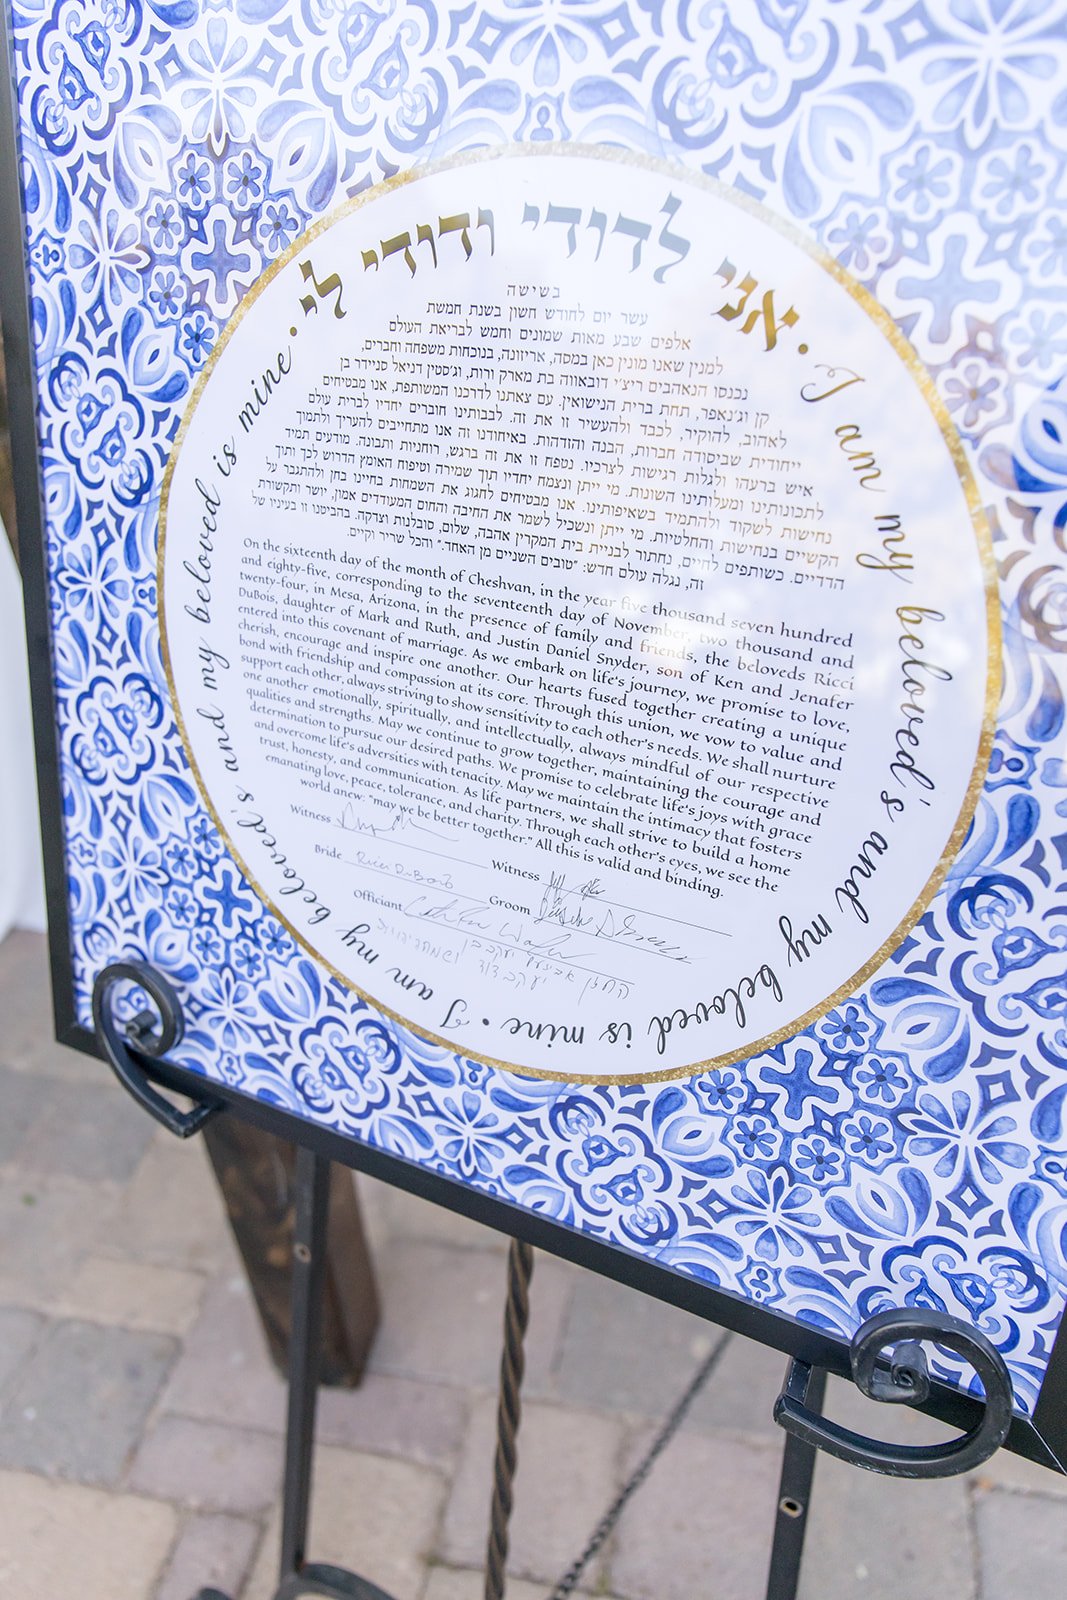 אני לדודי ודודי לי
• I am my beloved's and my beloved is mine • I am my beloved's and my beloved is mine •
בשישה
עשר יום לחודש חשון בשנת חמשת
אלפים שבע מאות שמונים וחמש לבריאת העולם
למנין שאנו מונין כאן במסה, אריזונה, בנוכחות משפחה וחברים,
נכנסו הנאהבים ריצ'י דובאווה בת מארק ורות, וג'סטין דניאל סניידר בן
קן וג'נאפר, תחת ברית הנישואין. עם צאתנו לדרכנו המשותפת, אנו מבטיחים
לאהוב, להוקיר, לכבד ולהעשיר זו את זה. לבבותינו חוברים יחדיו לברית עולם
ייחודית שביסודה חברות, הבנה והזדהות. באיחודנו זה אנו מתחייבים להעריך ולתמוך
איש ברעהו ולגלות רגישות לצרכיו. נטפח זו את זה ברגש, רוחניות ותבונה. מודעים תמיד
לתכונותינו ומעלותינו השונות. מי ייתן ונצמח יחדיו תוך שמירה וטיפוח האומץ הדרוש לכך ותוך
נחישות לשקוד ולהתמיד בשאיפותינו. אנו מבטיחים לחגוג את השמחות בחיינו בחן ולהתגבר על
הקשיים בנחישות והחלטיות. מי ייתן ונשכיל לשמר את החיבה והחום המעודדים אמון, יושר ותקשורת
הדדיים. כשותפים לחיים, נחתור לבניית בית המקרין אהבה, שלום, סובלנות וצדקה. בהביטנו זו בעיניו של
זה, נגלה עולם חדש: "טובים השניים מן האחד." והכל שריר וקיים.
On the sixteenth day of the month of Cheshvan, in the year five thousand seven hundred
and eighty-five, corresponding to the seventeenth day of November, two thousand and
twenty-four, in Mesa, Arizona, in the presence of family and friends, the beloveds Ricci
DuBois, daughter of Mark and Ruth, and Justin Daniel Snyder, son of Ken and Jenafer
entered into this covenant of marriage. As we embark on life's journey, we promise to love,
cherish, encourage and inspire one another. Our hearts fused together creating a unique
bond with friendship and compassion at its core. Through this union, we vow to value and
support each other, always striving to show sensitivity to each other's needs. We shall nurture
one another emotionally, spiritually, and intellectually, always mindful of our respective
qualities and strengths. May we continue to grow together, maintaining the courage and
determination to pursue our desired paths. We promise to celebrate life's joys with grace
and overcome life's adversities with tenacity. May we maintain the intimacy that fosters
trust, honesty, and communication. As life partners, we shall strive to build a home
emanating love, peace, tolerance, and charity. Through each other's eyes, we see the
world anew: "may we be better together." All this is valid and binding.
Witness
Witness
Bride Ricci DuBois
Groom
Officiant
החזן
יעקב דוד